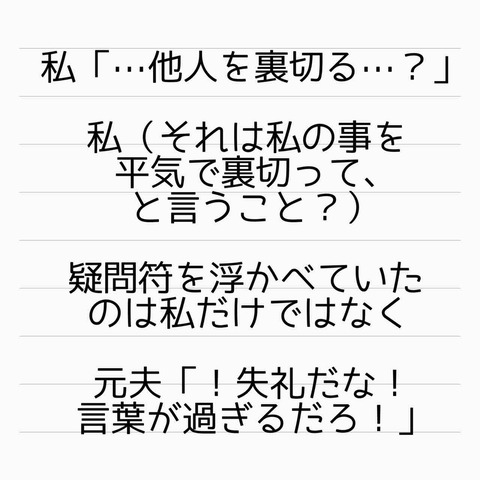 私「…他人を裏切る…？」
私（それは私の事を
平気で裏切って、
と言うこと？）
疑問符を浮かべていた
のは私だけではなく
元夫「！失礼だな！
言葉が過ぎるだろ！」